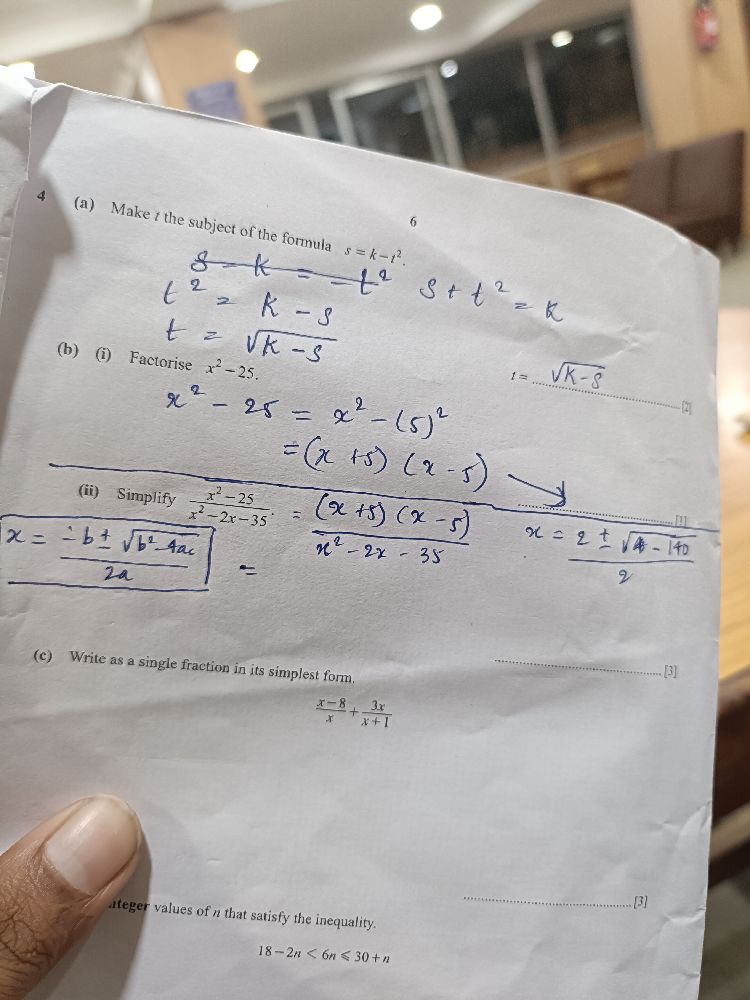 6
4 (a) Make t the subject of the formula s = k − t².
s − k = −t² s + t² = k
t² = k − s
t = √k − s
t = √k − s [2]
(b) (i) Factorise x² − 25.
x² − 25 = x² − (5)²
= (x + 5) (x − 5)
[1]
(ii) Simplify (x² − 25)/(x² − 2x − 35). = (x + 5) (x − 5)/(x² − 2x − 35)
x = −b ± √b² − 4ac / 2a
=
x = 2 ± √4 − 140 / 2
[3]
(c) Write as a single fraction in its simplest form.
(x − 8)/x + 3x/(x + 1)
[3]
values of n that satisfy the inequality.
18 − 2n < 6n ⩽ 30 + n